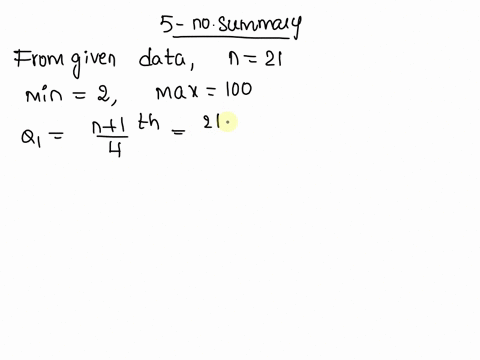 5-no.summary
From given data, n=21
min = 2, max = 100
Q₁ = n+1/4 th = 21